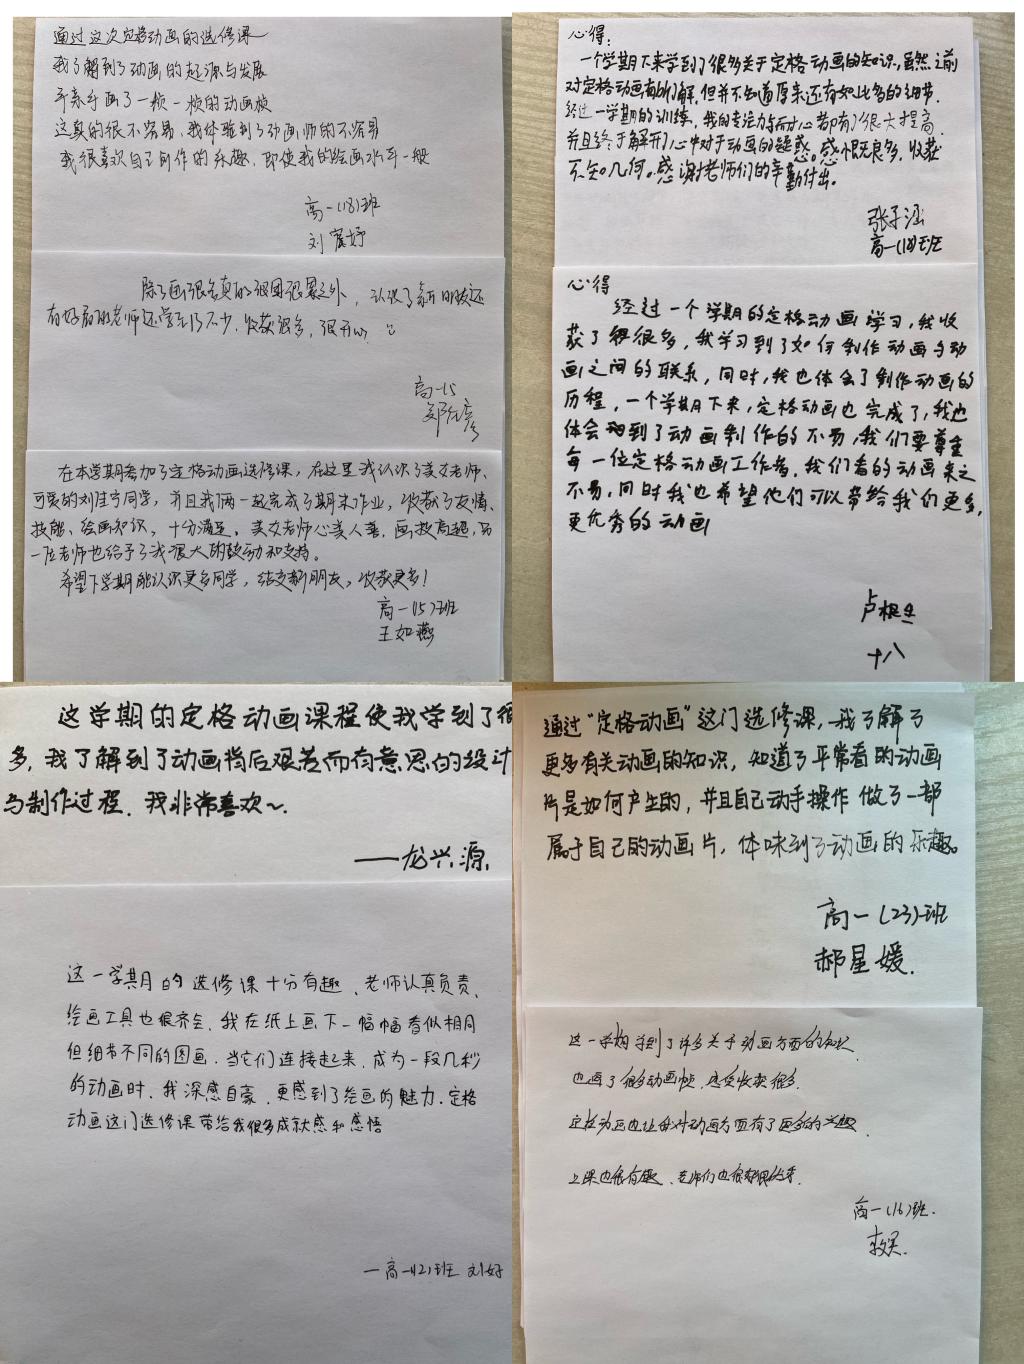 通过这次定格动画的选修课
我了解到了动画的起源与发展
并亲手画了一桢一桢的动画桢
这真的很不容易，我体验到了动画师的不容易
我很喜欢自己创作的乐趣，即使我的绘画水平一般
高一(18)班
除了画很多真的很困很累之外，认识了新朋友还
有好看的老师还学到了不少，收获很多，很开心
高一15
在本学期参加了定格动画选修课，在这里我认识了美女老师、
可爱的刘佳宁同学，并且我俩一起完成了期末作业，收获了友情、
技能、绘画知识，十分满足，美女老师心美人善，画技高超，另
一位老师也给予了我很大的鼓动和支持。
希望下学期能认识更多同学，结交新朋友，收获更多！
高一(15)班
王如燕
心得：
一个学期下来学到了很多关于定格动画的知识，虽然之前
对定格动画有所了解，但并不知道原来还有如此多的细节.
经过一学期的训练，我的专注力与耐心都有了很大提高，
并且终于解开了心中对于动画的疑惑。感慨良多，收获
不知几何。感谢老师们的辛勤付出。
张子涵
高一(18)班
心得
经过一个学期的定格动画学习，我收
获了很多，我学习到了如何制作动画与动
画之间的联系，同时，我也体会了制作动画的
历程，一个学期下来，定格动画也完成了，我也
体会到了动画制作的不易，我们要尊重
每一位定格动画工作者。我们看的动画来之
不易，同时我也希望他们可以带给我们更多，
更优秀的动画
十八
这学期的定格动画课程使我学到了很
多，我了解到了动画背后艰苦而有意思的设计
与制作过程，我非常喜欢~
——龙兴源.
这一学期的选修课十分有趣，老师认真负责，
绘画工具也很齐全，我在纸上画下一幅幅看似相同
但细节不同的图画，当它们连接起来，成为一段几秒
的动画时，我深感自豪，更感到了绘画的魅力，定格
动画这门选修课带给我很多成就感和感悟
—高一(2)班 刘好
通过“定格动画”这门选修课，我了解了
更多有关动画的知识，知道了平常看的动画
片是如何产生的，并且自己动手操作做了一部
属于自己的动画片，体味到了动画的乐趣。
高一(23)班
郝星媛.
这一学期学到了许多关于动画方面的知识
也画了很多动画帧，感受收获很多.
定格动画也让我对动画方面有了更多的兴趣
上课也很有趣，老师们也很
高一(16)班.